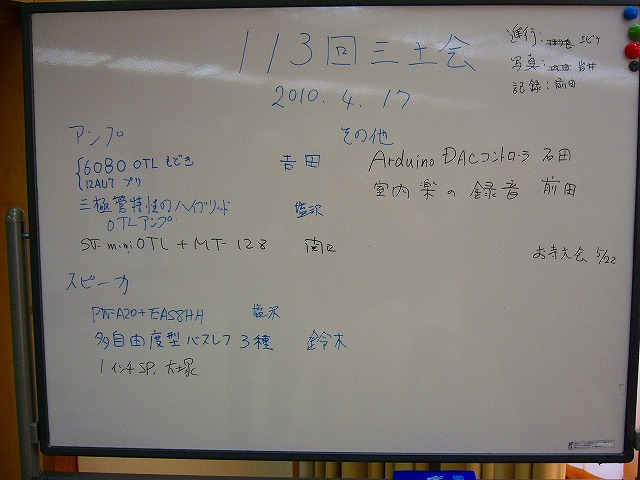 113回三土会
2010.4.17
進行:
写真: 岩井
記録:前田
アンプ
6080 OTL もどき 吉田
12AU7 プリ
三極管特性のハイブリッド 塩沢
OTLアンプ
SV-mini OTL + MT-128 関口
スピーカ
塩沢
多自由度型バスレフ 3種 鈴木
1インチSP. 大塚
その他
Arduino DACコントローラ 石田
室内楽の録音 前田
お寺大会 5/22